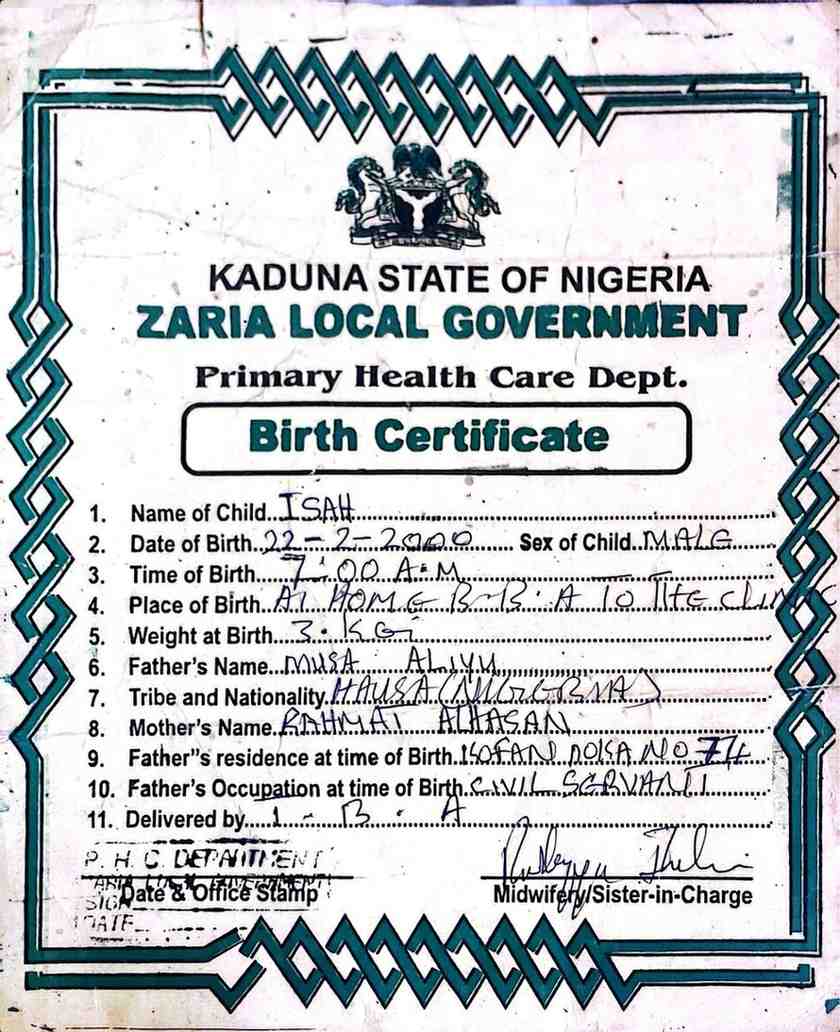 KADUNA STATE OF NIGERIA
ZARIA LOCAL GOVERNMENT
Primary Health Care Dept.
Birth Certificate
1. Name of Child..ISAH
2. Date of Birth..22-2-2000 Sex of Child..MALE
3. Time of Birth..7:00 A.M
4. Place of Birth..AT HOME B.B.A TO THE CLIN
5. Weight at Birth..3. KG
6. Father's Name..MUSA ALIYU
7. Tribe and Nationality HAUSA (NIGERIA)
8. Mother's Name..RAHMAT ALHASAN
9. Father"s residence at time of Birth. DOKA NO
10. Father's Occupation at time of Birth.CIVIL SERVANT
11. Delivered by. B. A
P. H. C. DEPARTMENT
Date & Office Stamp Midwifery/Sister-in-Charge
DATE